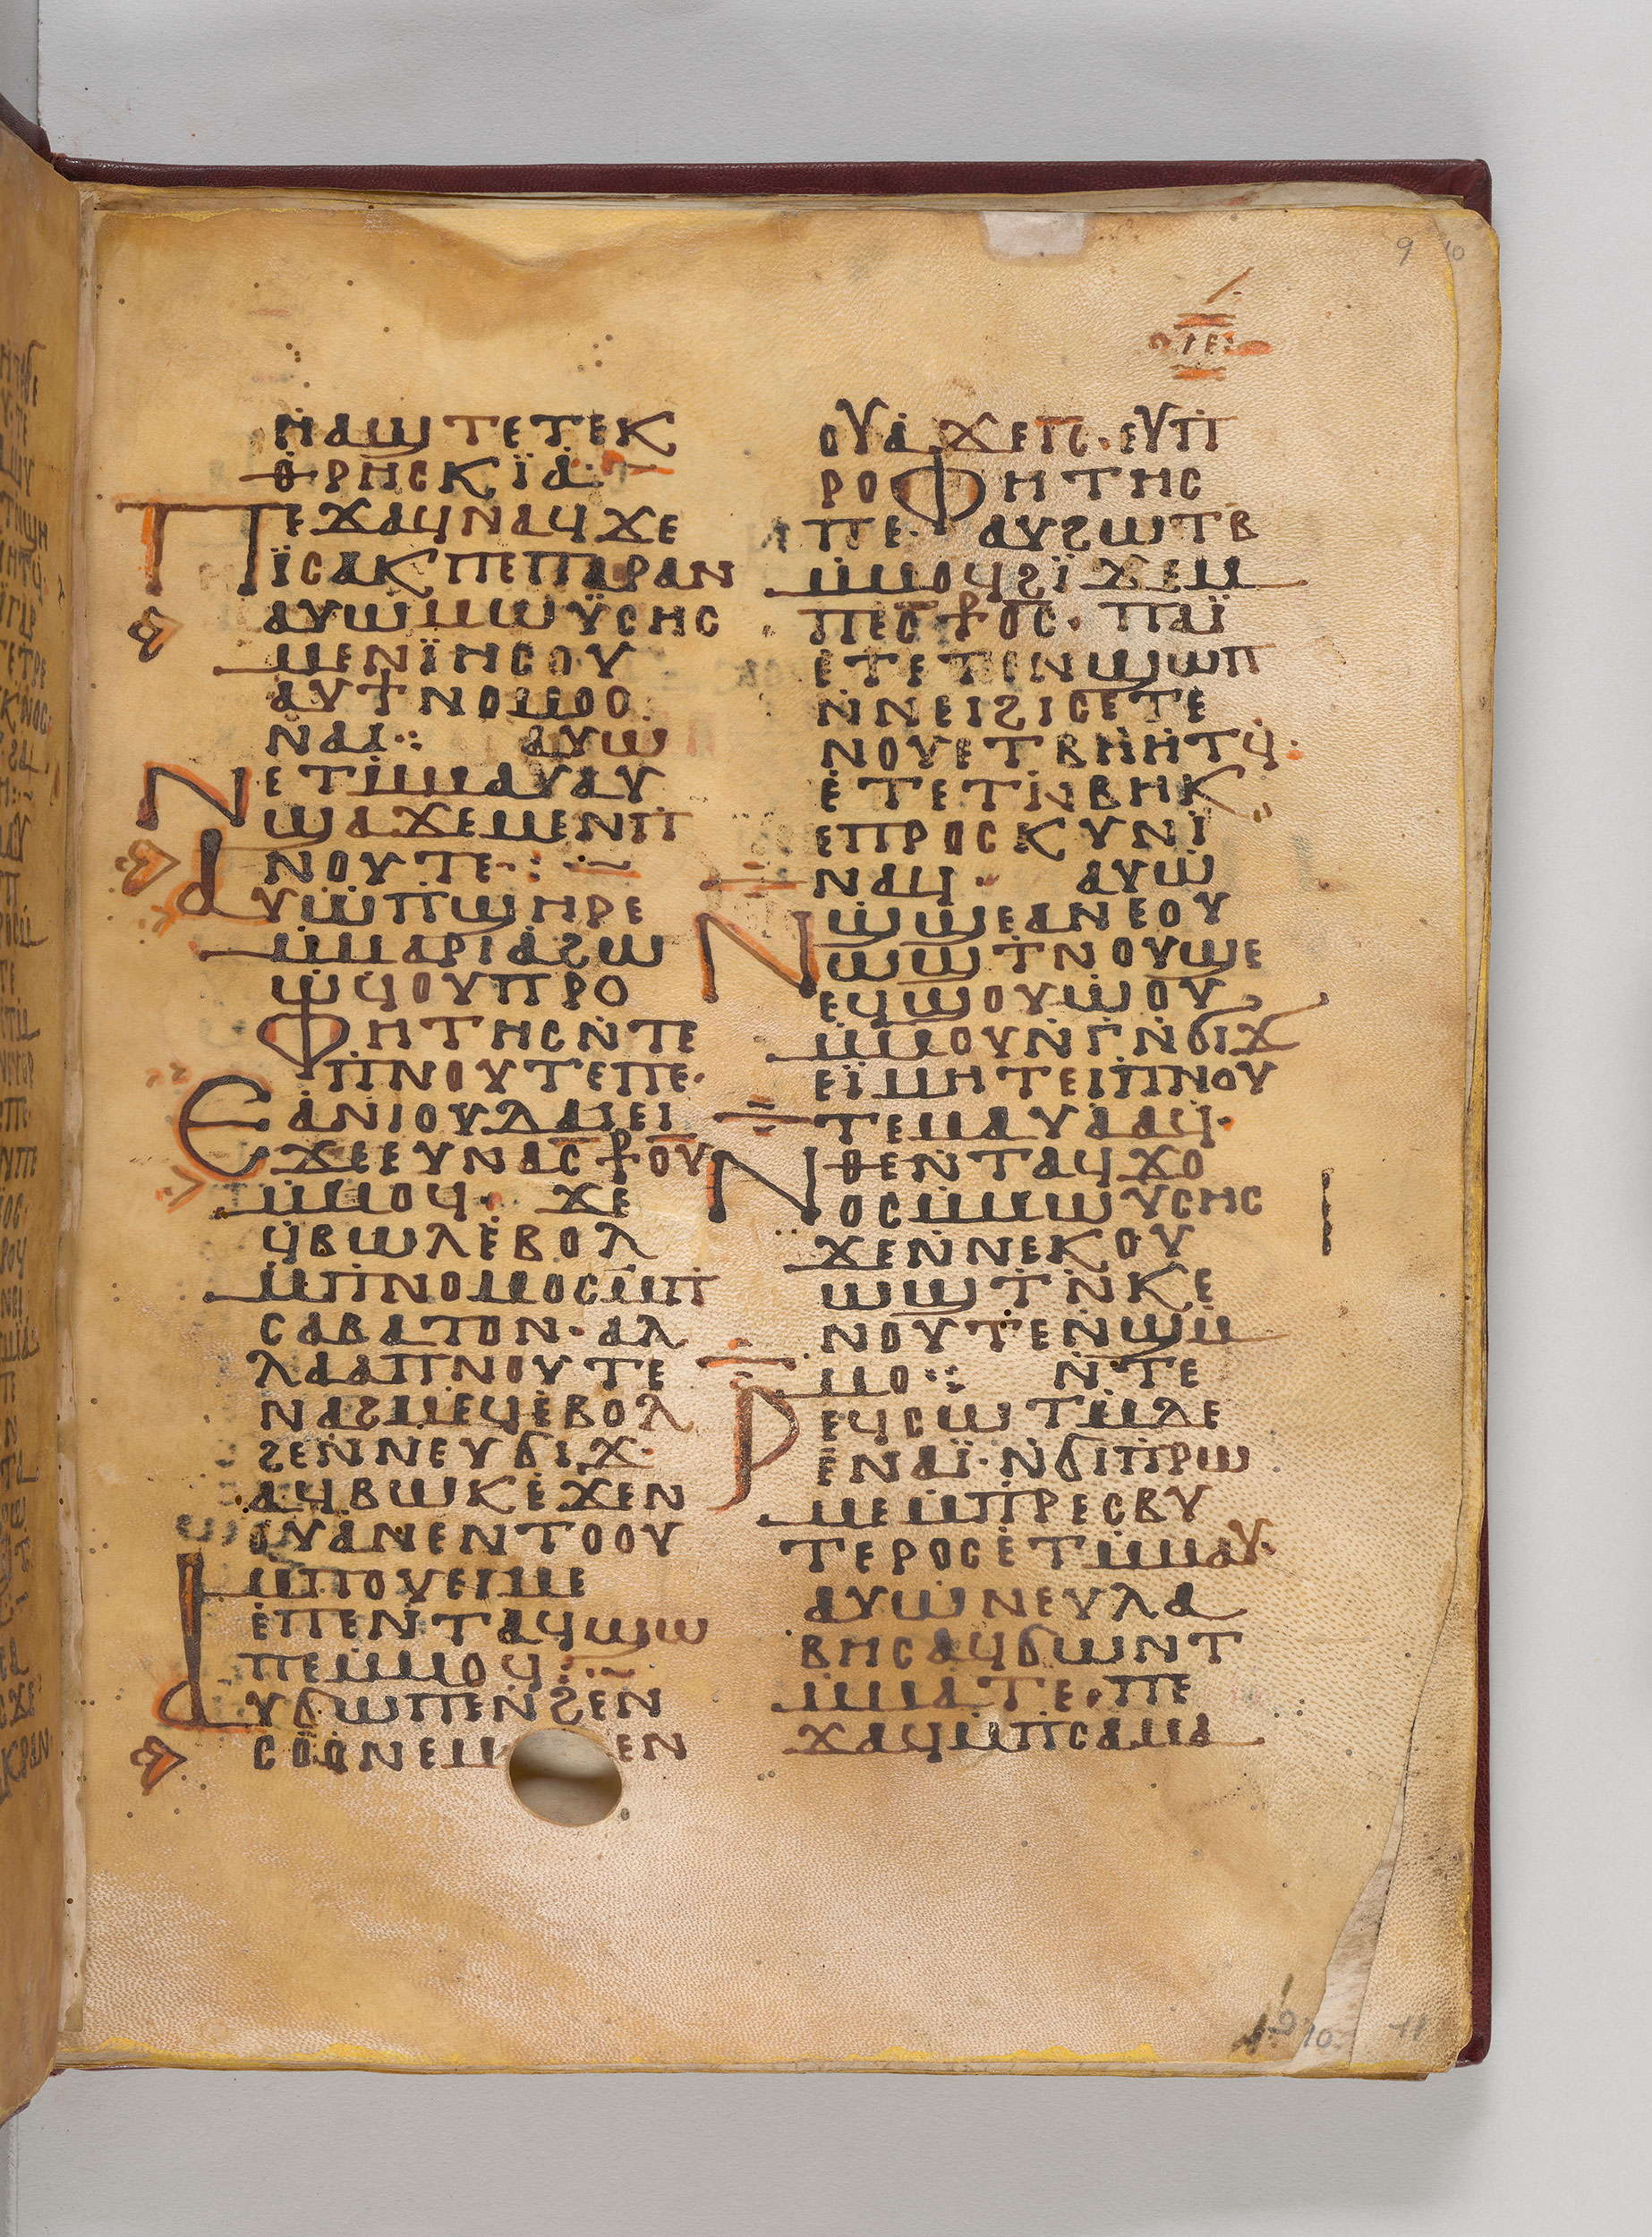 9 10
ⲓⲉ
ⲛ̇ⲁϣ ⲧⲉ ⲧⲉⲕ
ⲑⲣⲏⲥⲕⲓ̈ⲁ·
ⲡⲉϫⲁϥ ⲛⲁϥ ϫⲉ
ⲓ̈ⲥⲁⲕ ⲡⲉ ⲡⲁⲣⲁⲛ
ⲁⲩⲱ ⲙⲱⲩ̈ⲥⲏⲥ
ⲙⲉⲛ ⲓ̈ⲏⲥⲟⲩ
ⲁⲩϯ ⲛⲟⲙⲟⲥ
ⲛⲁⲓ⁖ ⲁⲩⲱ
ⲛⲉⲧⲙ̇ⲙⲁⲩ ⲁⲩ
ϣⲁϫⲉ ⲙⲉⲛ ⲡ
ⲛⲟⲩⲧⲉ·:
ⲁⲩⲱ ⲡ̇ϣⲏⲣⲉ
ⲙ̇ⲙⲁⲣⲓⲁ ϩⲱ
ⲱϥ ⲟⲩⲡⲣⲟ
ⲫⲏⲧⲏⲥ ⲛ̇ⲧⲉ
ⲡ̇ⲛⲟⲩⲧⲉ ⲡⲉ·
ⲉⲁⲛⲓⲟⲩⲇⲁⲓ ⲉⲓ
ϫⲉ ⲉⲩⲛⲁⲥⳁⲟⲩ
ⲙ̇ⲙⲟϥ· ϫⲉ
ϥⲃⲱⲗ ⲉ̇ⲃⲟⲗ
ⲙ̇ⲡⲛⲟⲙⲟⲥ ⲙ̇ⲡ
ⲥⲁⲃⲁⲧⲟⲛ· ⲁⲗ
ⲗⲁ ⲁⲡⲛⲟⲩⲧⲉ
ⲛⲁϩⲙⲉϥ ⲉ̇ⲃⲟⲗ
ϩⲉⲛ ⲛⲉⲩϭⲓϫ·
ⲁϥⲃⲱⲕ ⲉ̇ϫⲉⲛ
ⲟⲩⲁ ⲛⲉⲛⲧⲟⲟⲩ
ⲙ̇ⲡⲟⲩⲉⲓⲙⲉ
ⲉ̇ⲡⲉⲛⲧⲁϥϣⲱ
ⲡⲉ ⲙ̇ⲙⲟϥ:
ⲁⲩϭⲱⲡⲉ ⲛ̇ϩⲉⲛ
ⲥⲟⲟⲛⲉ ⲙ ⲉⲛ
ⲟⲩⲁ̇ ϫⲉ ⲡⲥ· ⲉⲩⲡ
ⲣⲟⲫⲏⲧⲏⲥ
ⲡⲉ· ⲁⲩϩⲱⲧⲃ
ⲙ̇ⲙⲟϥ ϩⲓ̈ϫⲉⲙ
ⲡⲉⲥⳁⲟⲥ· ⲡⲁⲓ̈
ⲉ̇ⲧⲉⲧⲛ̇ϣⲱⲡ
ⲛ̇ⲛⲉⲓϩⲓⲥⲉ ⲧⲉ
ⲛⲟⲩ ⲉⲧⲃⲏⲏⲧϥ·
ⲉ̇ⲧⲉⲧⲛ̇ⲃⲏⲕ
ⲉⲡⲣⲟⲥⲕⲩⲛⲓ̈
ⲛⲁϥ· ⲁⲩⲱ̇
ⲛ̇ϣϣⲉ ⲁⲛ ⲉⲟⲩ
ⲱϣⲧ ⲛⲟⲩϣⲉ
ⲉϥϣⲟⲩⲱⲟⲩ
ⲙ̇ⲙⲟⲩⲛⲅ ⲛ̇ϭⲓϫ
ⲉⲓ̈ⲙⲏⲧⲉⲓ ⲡ̇ⲛⲟⲩ
ⲧⲉ ⲙⲁⲩⲁⲁϥ·
ⲛⲑⲉ ⲛ̇ⲧⲁϥϫⲟ
ⲟⲥ ⲙ̇ⲙⲱⲩⲥⲏⲥ
ϫⲉ ⲛ̇ⲛⲉⲕⲟⲩ
ⲱϣⲧ ⲛ̇ⲕⲉ
ⲛⲟⲩⲧⲉ ⲛ̇ϣⲙ̇
ⲙⲟ⁖ ⲛ̇ⲧⲉ
ⲣⲉϥⲥⲱⲧⲙ̇ ⲇⲉ
ⲉ̇ⲛⲁⲓ̈· ⲛ̇ϭⲓ ⲡ̇ⲣⲱ
ⲙⲉ ⲙ̇ⲡⲣⲉⲥⲃⲩ
ⲧⲉⲣⲟⲥ ⲉ̇ⲧⲙ̇ⲙⲁⲩ·
ⲁⲩⲱ ⲛⲉⲩⲗⲁ
ⲃⲏⲥ ⲁϥϭⲱⲛⲧ
ⲙ̇ⲙⲁⲧⲉ· ⲡⲉ
ϫⲁϥ ⲙ̇ⲡⲥⲁⲙⲁ
10
11